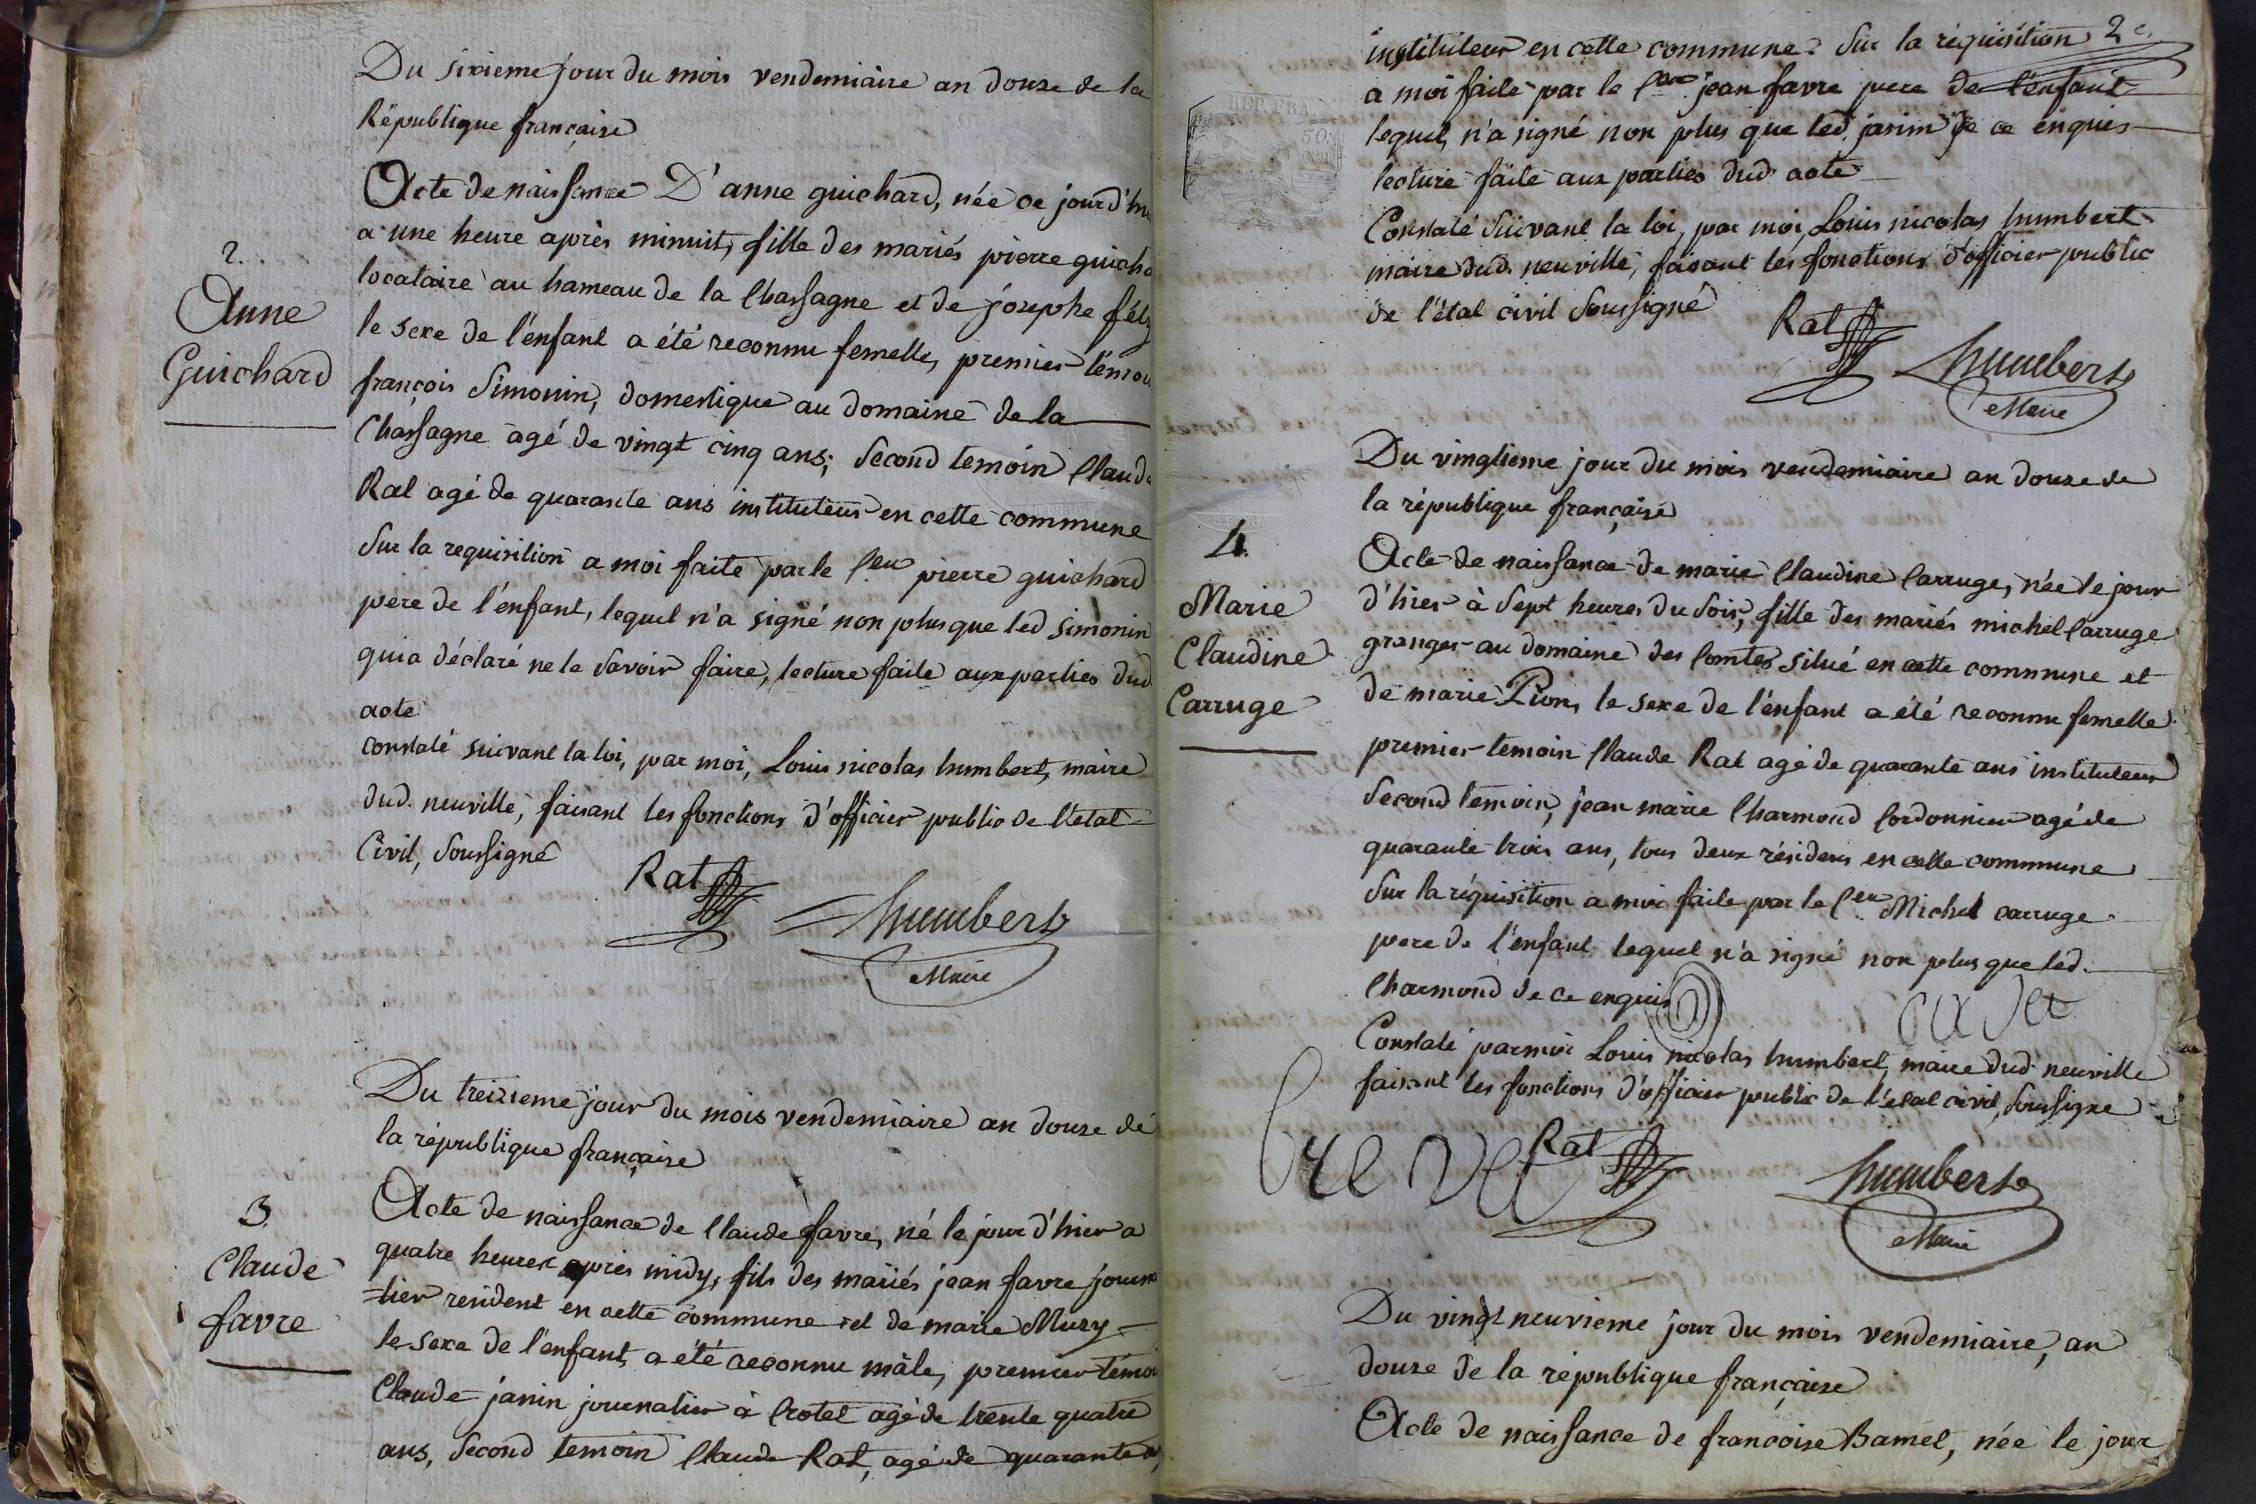 Du sixieme jour du mois vendemiaire an douze de la
République française
2.
Anne
Guichard
Acte de naissance D'anne guichard, née ce jourd'hu
a une heure après minuit, fille des mariés pierre guicha
locataire au hameau de la Chassagne et de josephe féli
le sexe de l'enfant a été reconnu femelle, premier témoi
françois Simonin, domestique au domaine de la
Chassagne agé de vingt cinq ans; Second temoin Claude
Rat agé de quarante ans instituteur en cette commune
Sur la requisition a moi faite par le Cen pierre guichard
père de l'enfant, lequel n'a signé non plus que led simonin
qui a déclaré ne le Savoir faire, lecture faite aux parties dud
acte
constaté suivant la loi, par moi, Louis nicolas humbert, maire
dud. neuville, faisant les fonctions d'officier public de l'état
Civil, Soussigné
Rat
humbert
Maire
Du treizieme jour du mois vendemiaire an douze de
la république française
3.
Claude
favre
Acte de naissance de Claude favre, né le jour d'hier a
quatre heures après midy, fils des mariés jean favre journa
=lier resident en cette commune et de marie Mury
le sexe de l'enfant a été reconnu mâle, premier témoi
Claude janin journalier à Crotel agé de trente quatre
ans, Second temoin Claude Rat, agé de quarante a,
instituteur en cette commune. Sur la réquisition 2e.
a moi faite par le Cen jean favre pere de l'enfant
lequel n'a signé non plus que led. janin de ce enquis
lecture faite aux parties dud. acte
REP. FRA.
50
Constaté Suivant la loi, par moi, Louis nicolas humbert
maire dud. neuville, faisant les fonctions d'officier public
de l'état civil Soussigné
Rat
humbert
Maire
Du vingtieme jour du mois vendemiaire an douze de
la république française
4.
Marie
Claudine
Carruge
Acte de naissance de marie Claudine Carruge, née le jour
d'hier à Sept heures du Soir, fille des mariés michel Carruge
granger au domaine des Comtes situé en cette commune et
de marie Pion, le sexe de l'enfant a été reconnu femelle
premier temoin Claude Rat agé de quarante ans instituteur
Second temoin, jean marie Charmond Cordonnier agé de
quarante trois ans, tous deux résidens en cette commune
Sur la réquisition a moi faite par le Cen Michel carruge
pere de l'enfant lequel n'a signé non plus que led.
Charmond de ce enquis
Constaté par moi Louis nicolas humbert, maire dud neuville
faisant les fonctions d'officier public de l'état civil, Soussigné
Rat
humbert
Maire
Du vingt neuvieme jour du mois vendemiaire, an
douze de la république française
Acte de naissance de françoise Bamet, née le jour